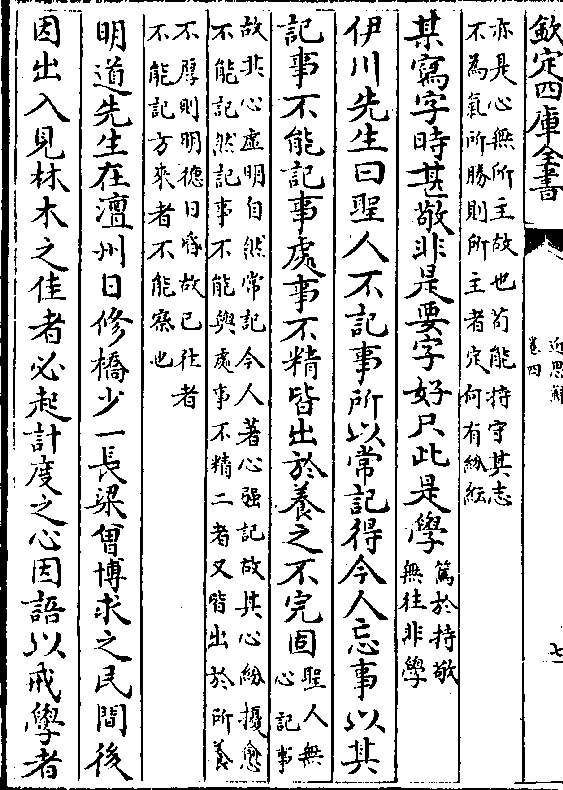 欽定四庫全書
近思錄
卷四
七
亦是心無所主故也苟能持守其志
不為氣所勝則所主者定何有紛紜
某寫字時甚敬非是要字好只此是學
篤於持敬
無往非學
伊川先生曰聖人不記事所以常記得今人忘事以其
記事不能記事處事不精皆出於養之不完固
聖人無
心記事
故其心虛明自然常記今人著心强記故其心紛擾愈
不能記然記事不能與處事不精二者又皆出於所養
不厚則明德日昏故已往者
不能記方來者不能察也
明道先生在澶州日修橋少一長梁曾博求之民間後
因出入見林木之佳者必起計度之心因語以戒學者